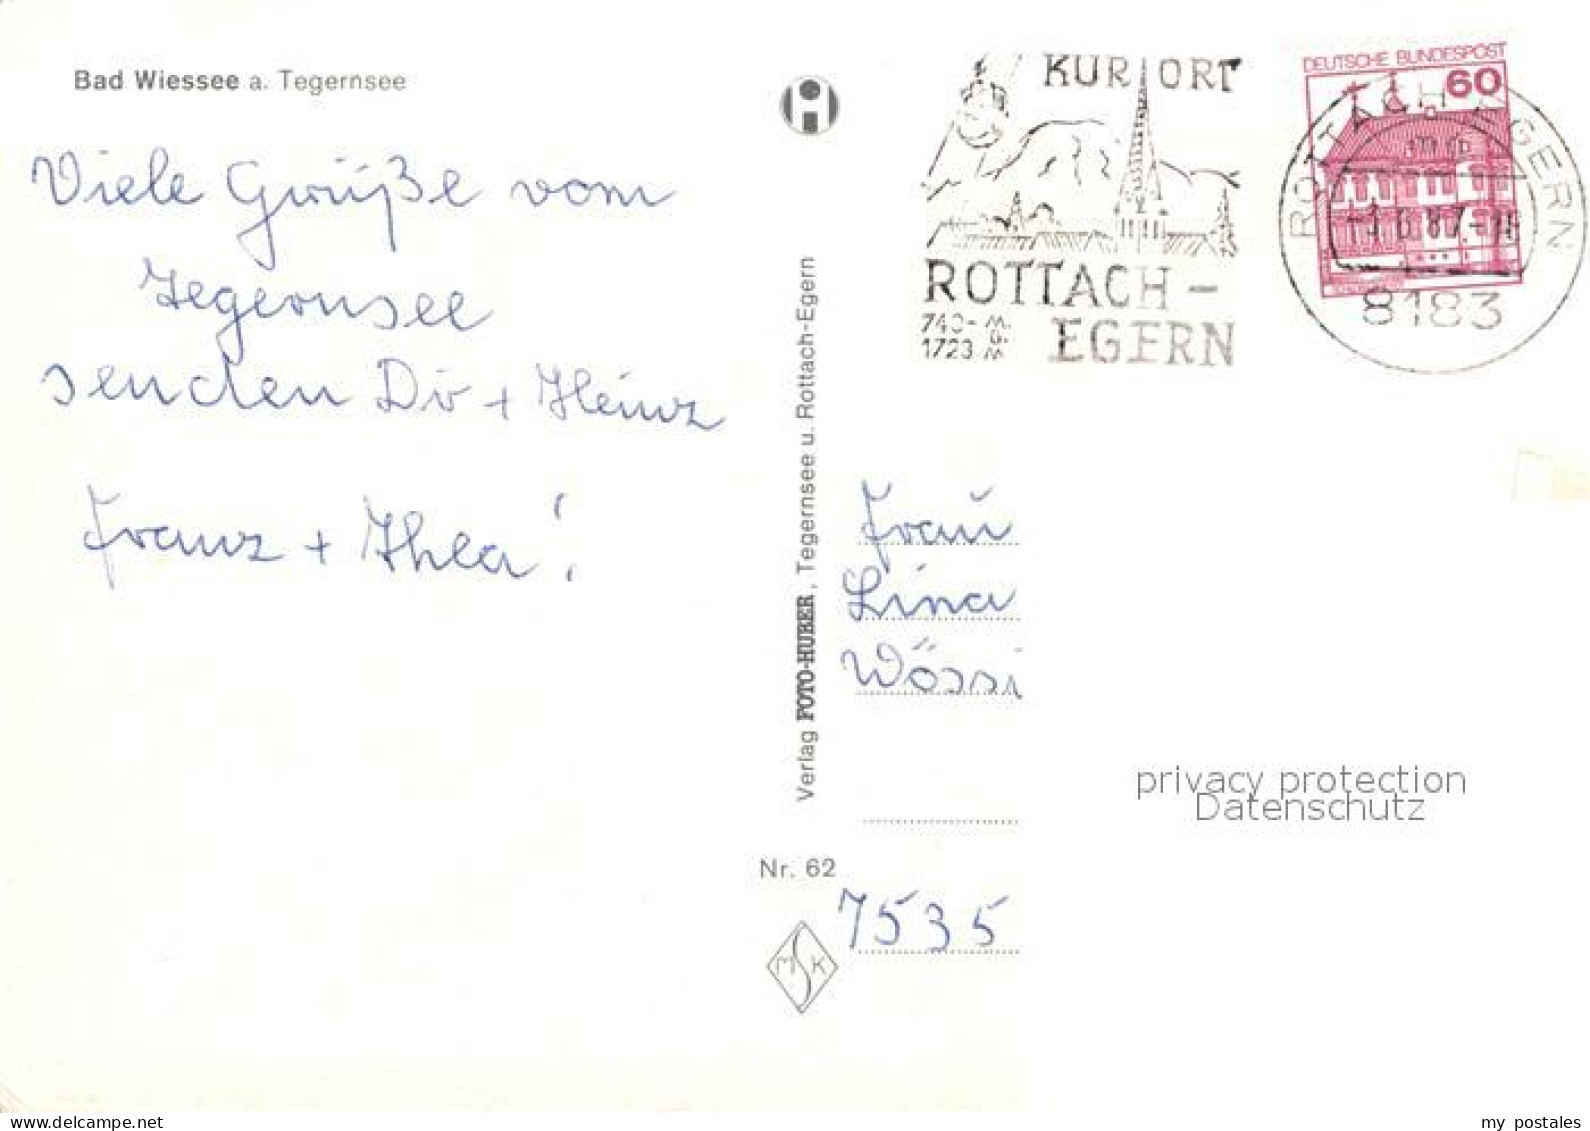 Bad Wiessee a. Tegernsee
Viele Grüße vom
Tegernsee
senden Dir + Heinz
Franz + Thea!
Verlag FOTO-HUBER, Tegernsee u. Rottach-Egern
Nr. 62
MSK
KURORT
ROTTACH-
EGERN
740- M.
ü.
1723 M
DEUTSCHE BUNDESPOST
60
ROTTACH-EGERN
87-16
8183
Frau
Lina
Wössi
7535
privacy protection
Datenschutz
my postales